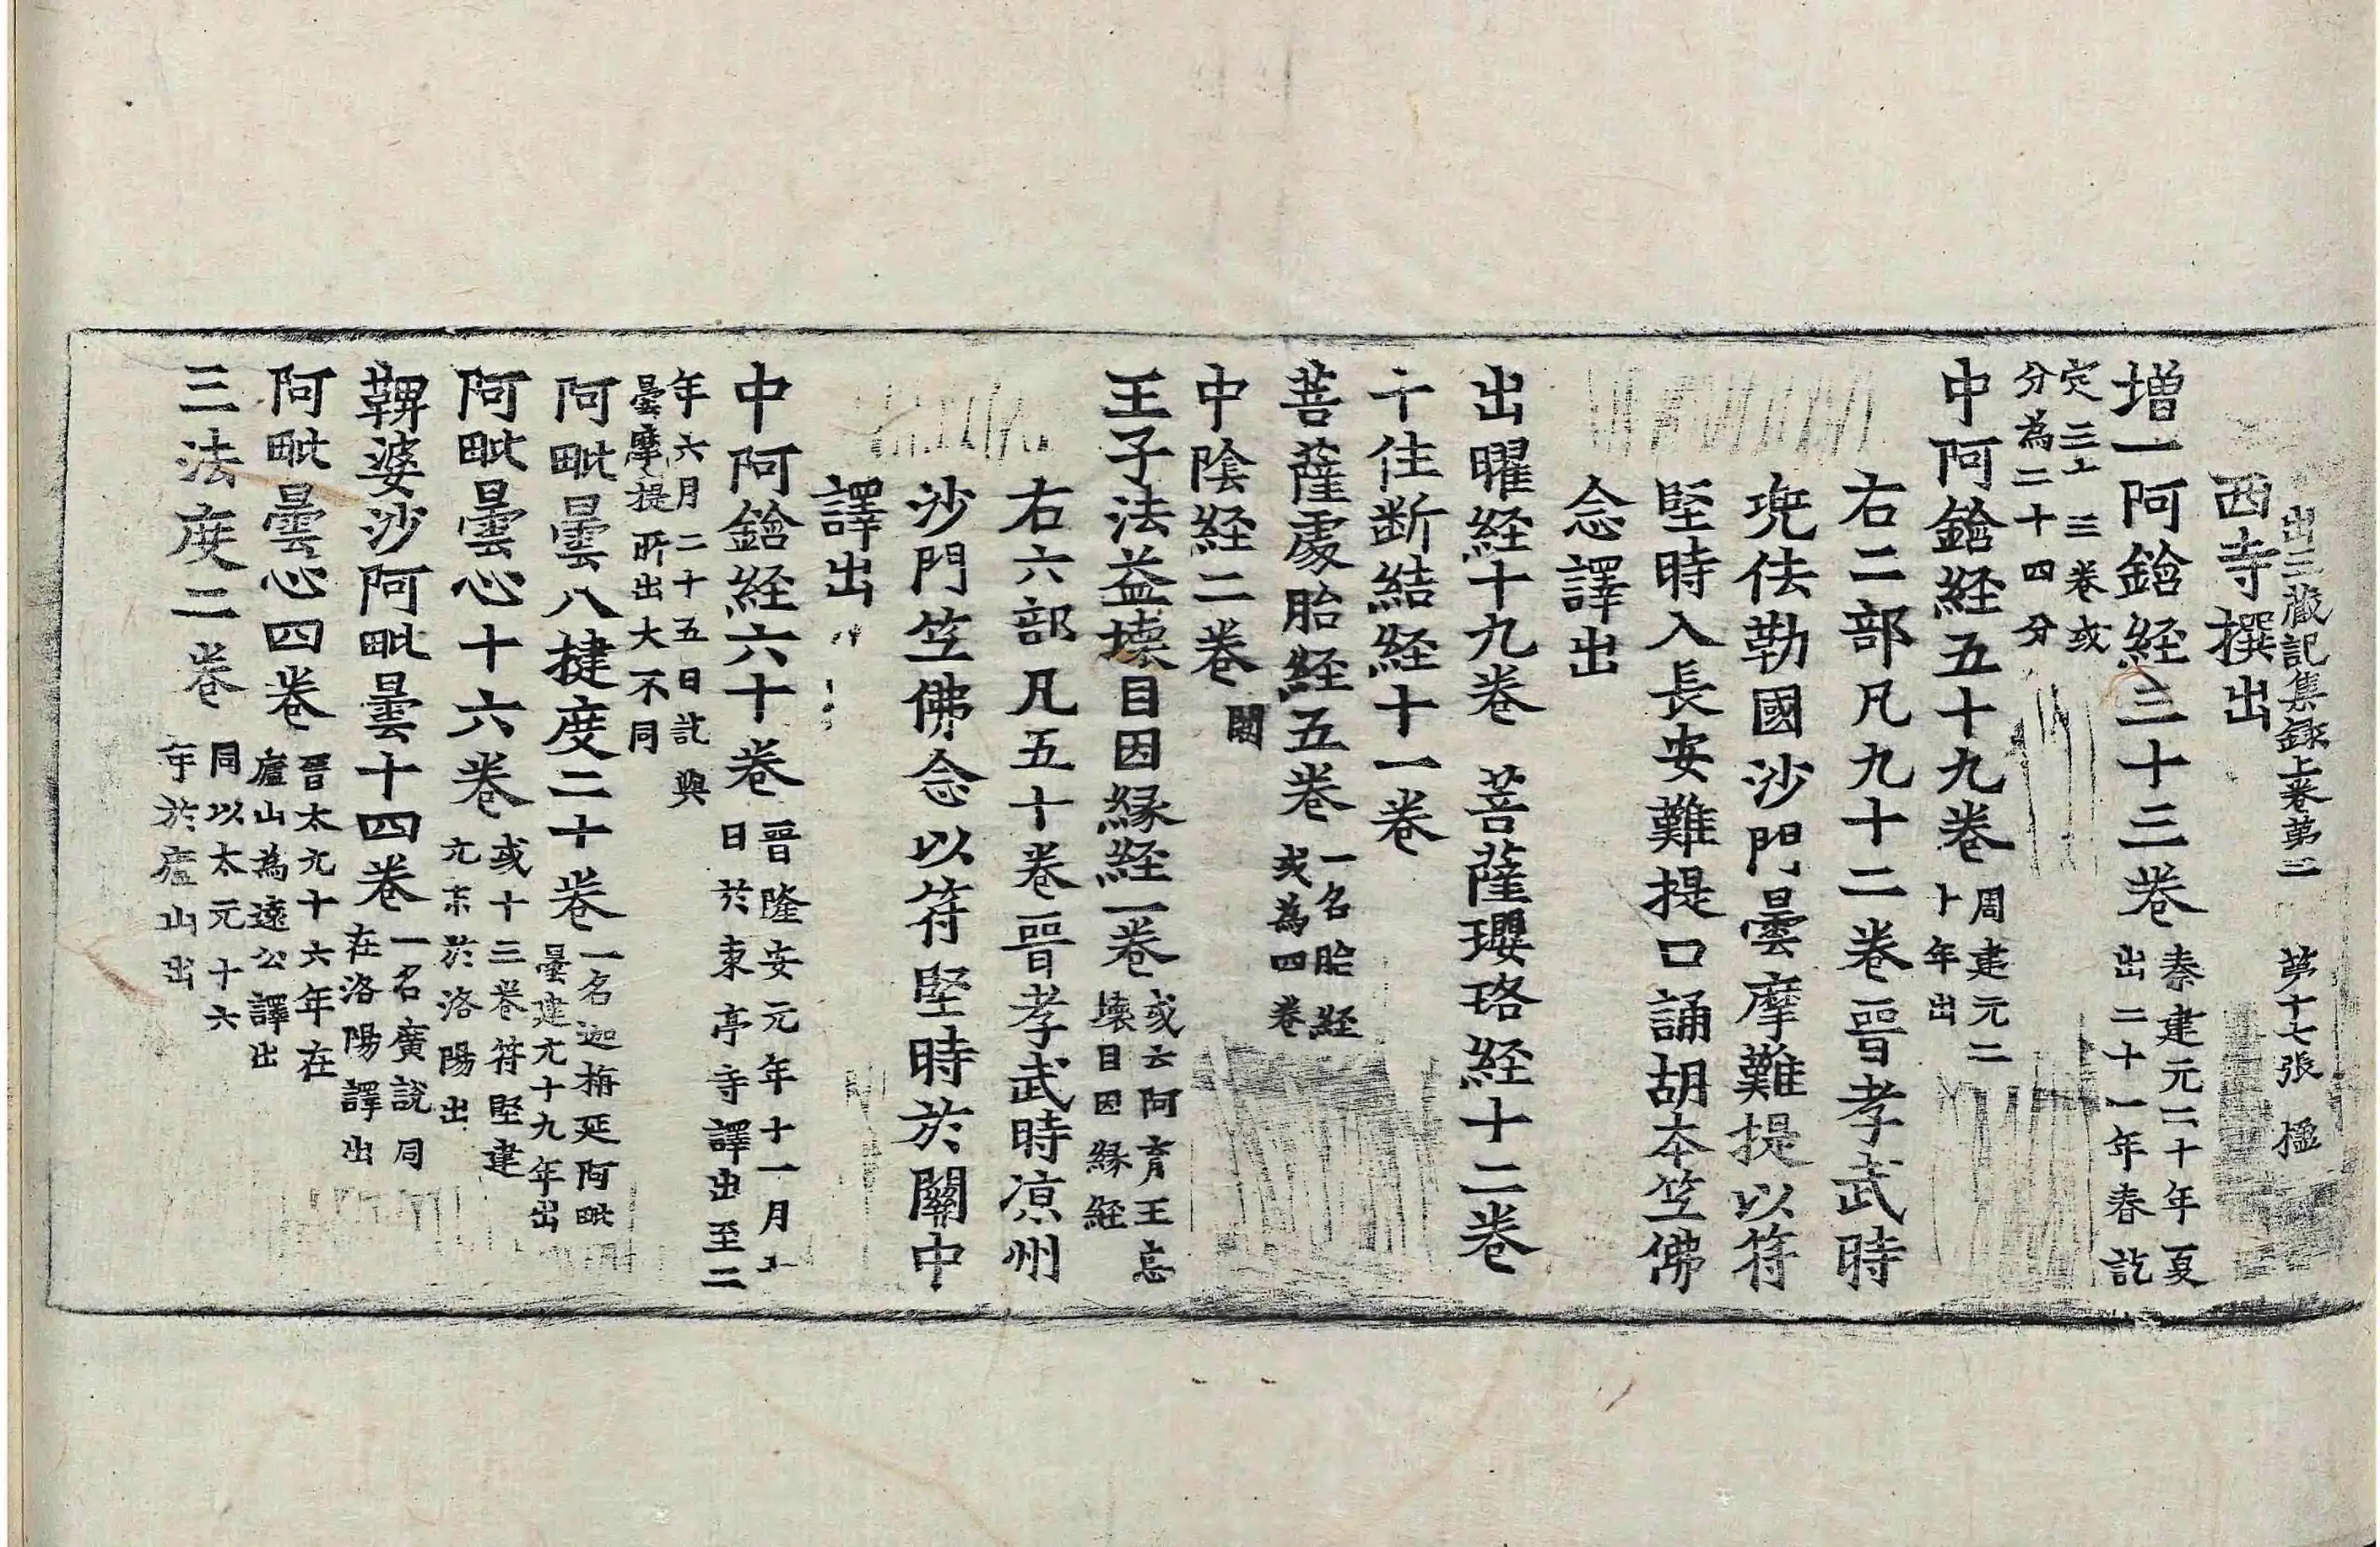 出三藏記集錄上卷第二　第十七張　楹
西寺撰出
增一阿鋡経三十三卷 秦建元二十年夏
出二十一年春訖
定三十三卷或
分為二十四分
中阿鋡経五十九卷 周建元二
十年出
右二部凡九十二卷晉孝武時
兜佉勒國沙門曇摩難提以符
堅時入長安難提口誦胡本竺佛
念譯出
出曜経十九卷　菩薩瓔珞経十二卷
十住断結経十一卷
菩薩處胎経五卷 一名胎経
或為四卷
中陰経二卷 闕
王子法益壊目因縁経一卷 或云阿育王忘
壊目因縁経
右六部凡五十卷晉孝武時凉州
沙門竺佛念以符堅時於關中
譯出
中阿鋡経六十卷 晉隆安元年十一月十
日於東亭寺譯出至二
年六月二十五日訖與
曇摩提所出大不同
阿毗曇八揵度二十卷 一名迦旃延阿毗
曇建元十九年出
阿毗曇心十六卷 或十三卷符堅建
元末於洛陽出
鞞婆沙阿毗曇十四卷 一名廣説同
在洛陽譯出
阿毗曇心四卷 晉太元十六年在
廬山為遠公譯出
三法度二卷 同以太元十六
年於廬山出